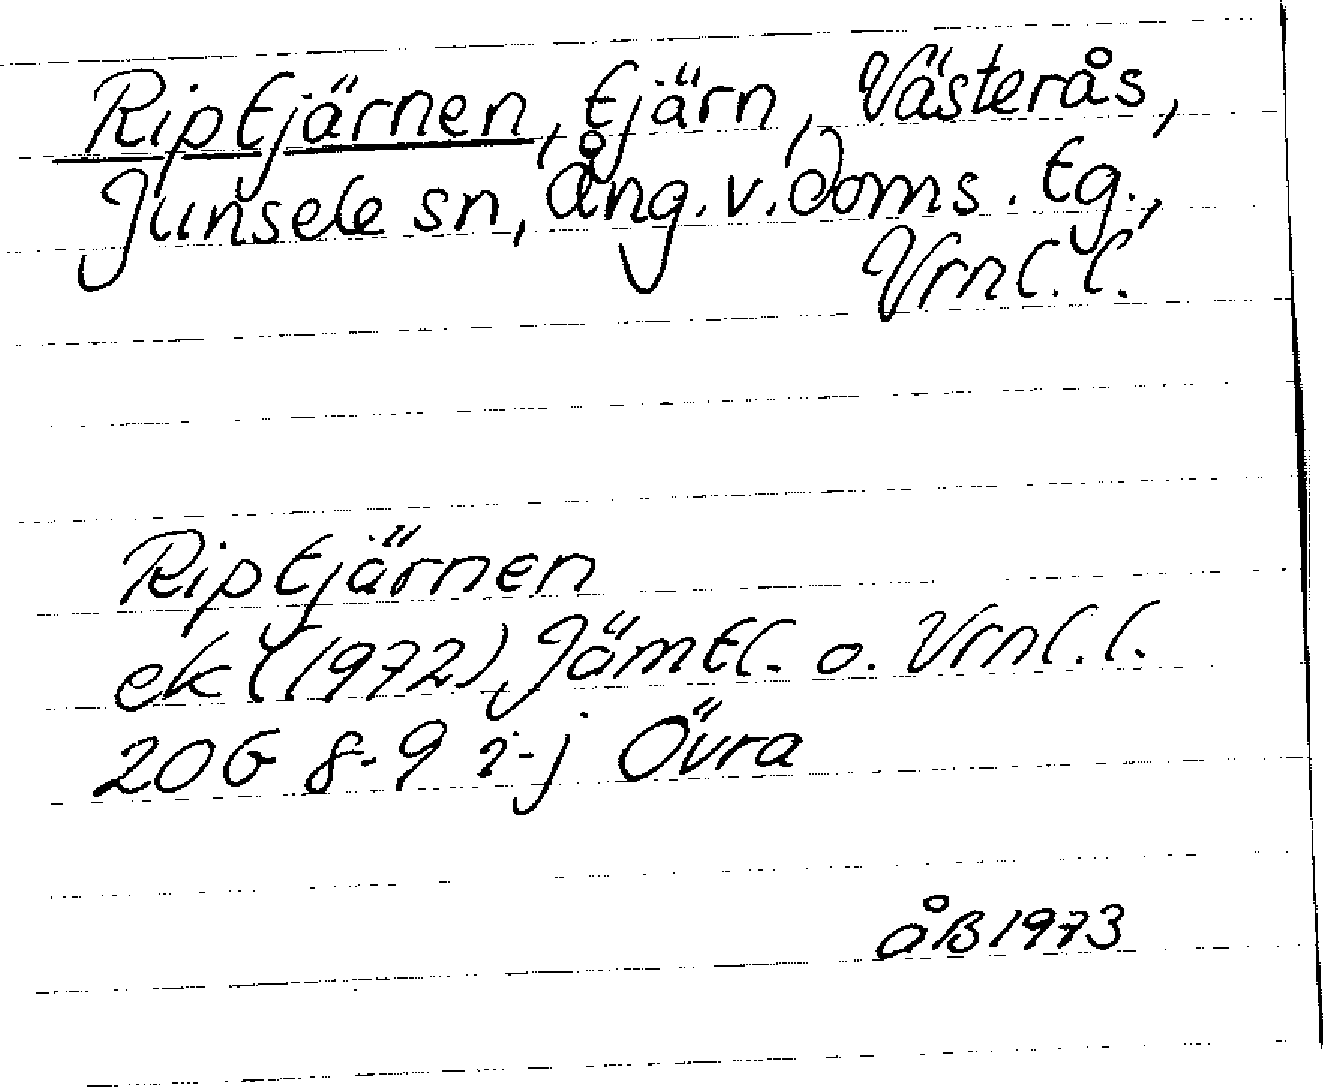 Riptjärnen, tjärn, Västerås,
Junsele sn, Ång. v. doms. tg.,
Vrnl. l.
Riptjärnen
ek (1972) Jämtl. o. Vrnl. l.
20G 8-9 i-j Övra
åB 1973